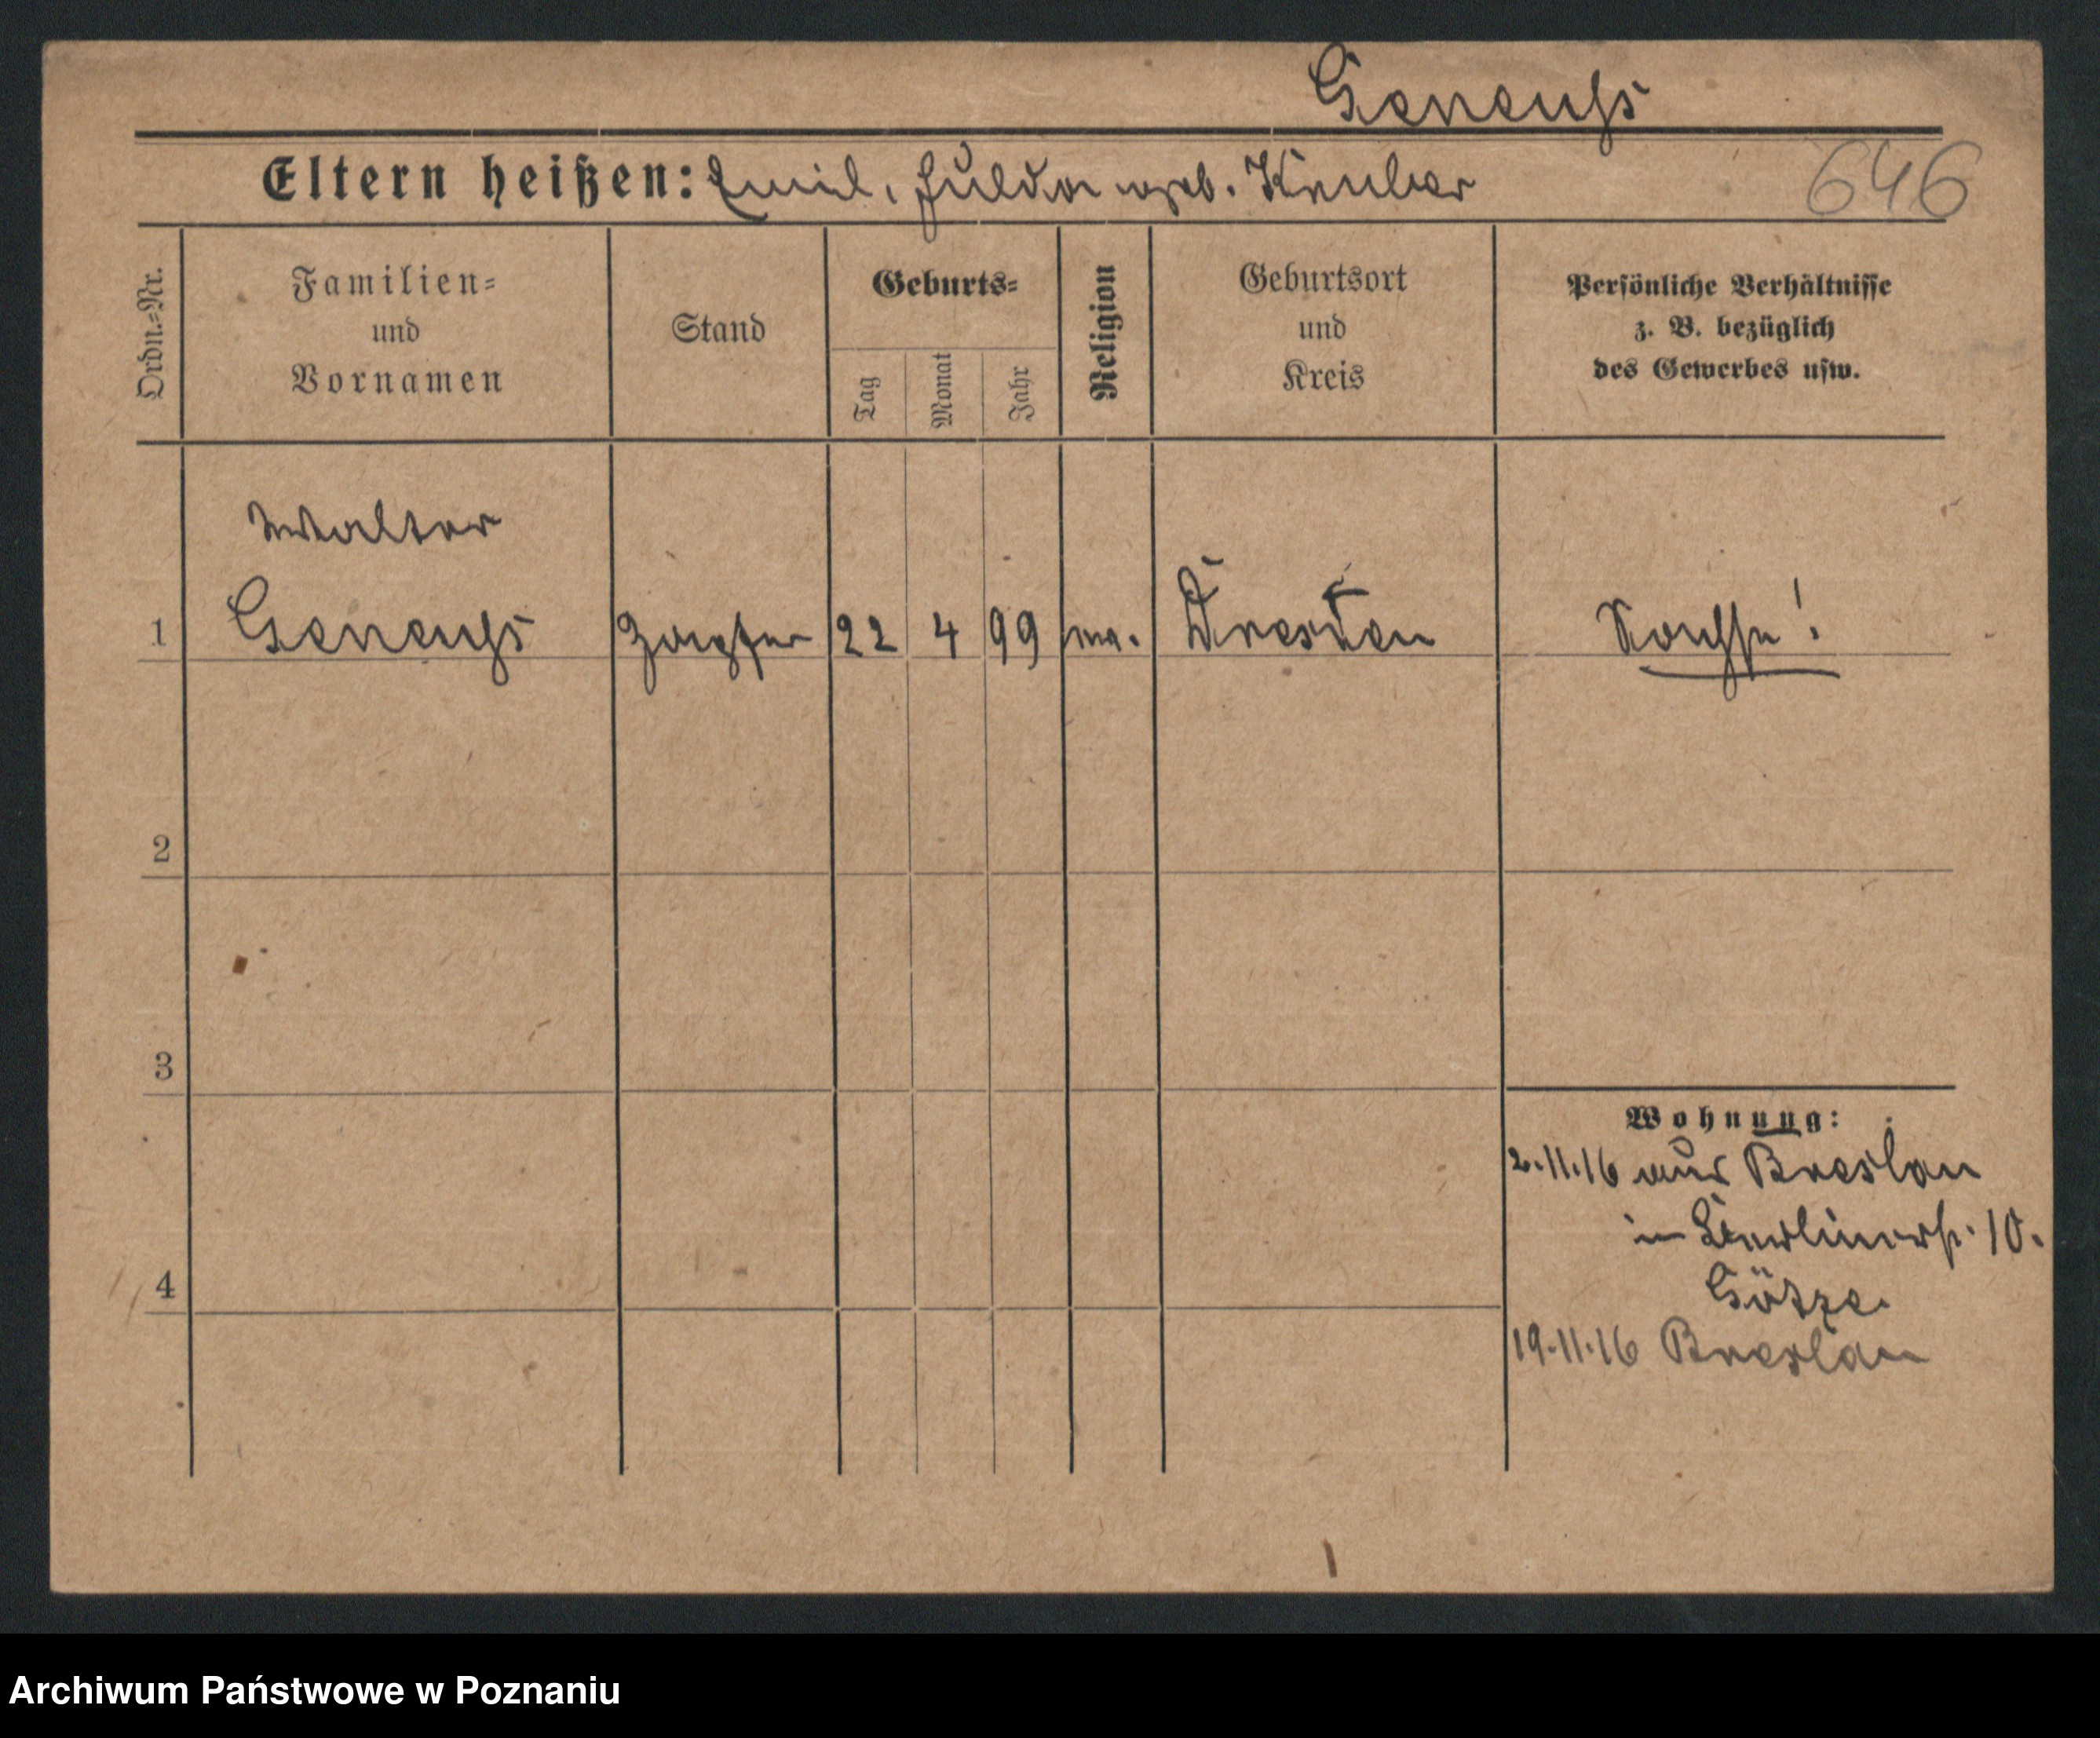 Geneuhs
Eltern heißen: Emil, Hulda geb. Keuler
646
Ordn.-Nr.
Familien-
und
Vornamen
Stand
Geburts-
Tag
Monat
Jahr
Religion
Geburtsort
und
Kreis
Persönliche Verhältnisse
z. B. bezüglich
des Gewerbes usw.
Walter
1 Geneuhs 22 4 99 Dresden Sachse!
2
3
4
Wohnung:
2.11.16 aus Breslau
in Berlinerst. 10.
Götze.
19.11.16 Breslau
Archiwum Państwowe w Poznaniu